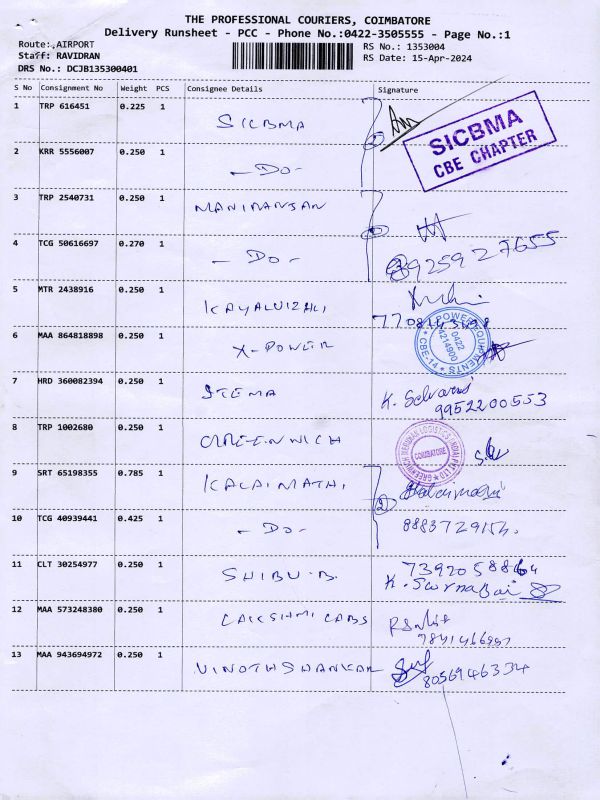 THE PROFESSIONAL COURIERS, COIMBATORE
Delivery Runsheet - PCC - Phone No.:0422-3505555 - Page No.:1
Route:,AIRPORT
RS No.: 1353004
Staff: RAVIDRAN
RS Date: 15-Apr-2024
DRS No.: DCJB135300401
S No Consignment No Weight PCS Consignee Details Signature
1 TRP 616451 0.225 1 SICBMA
SICBMA
CBE CHAPTER
2 KRR 5556007 0.250 1 -Do-
3 TRP 2540731 0.250 1 MANIRANJAN
4 TCG 50616697 0.270 1 -Do-
8925927655
5 MTR 2438916 0.250 1 KAYALVIZHI
6 MAA 864818898 0.250 1 X-POWER
X POWER EQUIPMENTS
0422
4214900
CBE-14
7 HRD 360082394 0.250 1 STEMA K. Selvarani
9952200553
8 TRP 1002680 0.250 1 GREENWICH
GREENWICH MERIDIAN LOGISTICS (INDIA) PVT LTD
COIMBATORE
9 SRT 65198355 0.785 1 KALAIMATHI Kalaimathi
2
10 TCG 40939441 0.425 1 -Do- 8883729154.
11 CLT 30254977 0.250 1 SHIBU.B. 7392058864
K. Swrnabai
12 MAA 573248380 0.250 1 LAKSHMI LABS
13 MAA 943694972 0.250 1 VINOTHSHANKAR 8056946334